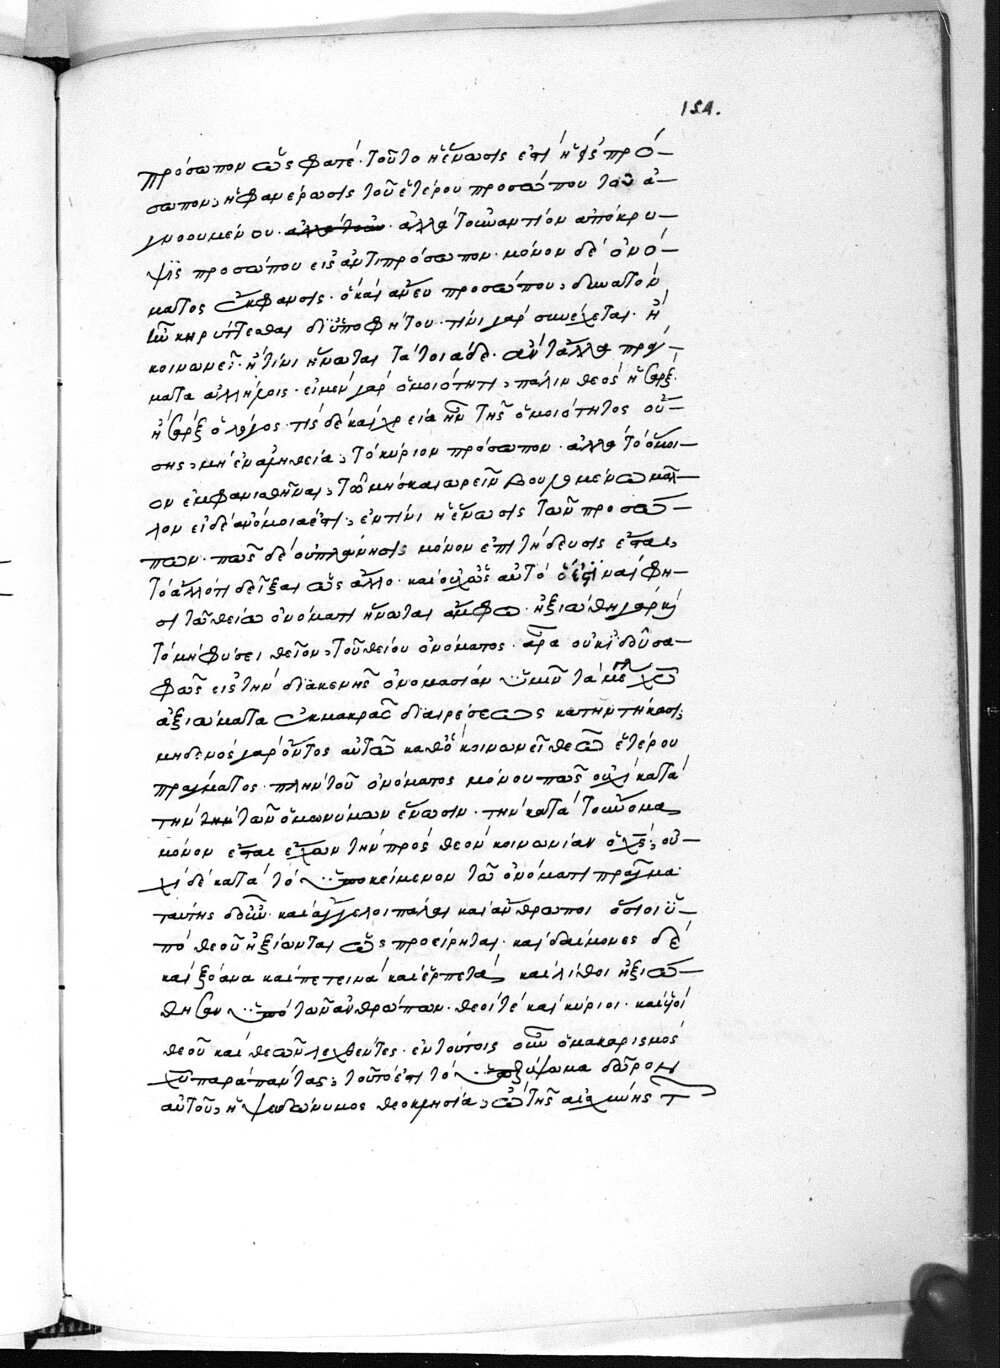 151.
πρόσωπον ὥς φατέ· τοῦτο ἡ ἕνωσις ἐστὶ ἡ εἰς πρό-
σωπον, ἡ φανέρωσις τοῦ ἑτέρου προσώπου τοῦ ἀ-
γνοουμένου· ἀλλὰ τοὐναντίον ἀπόκρυ-
ψις προσώπου εἰς ἀντιπρόσωπον· μόνον δὲ ὀνό-
ματος ἔκφανσις· ὃ καὶ ἄνευ προσώπου, δυνατὸν
ἦν κηρύττεσθαι δι' ὑποφήτου· τίνι γὰρ συνέχεται· ἢ
κοινωνεῖ· ἢ τίνι ἥνωται τὰ τοιάδε· ἀντ' ἄλλα πράγ-
ματα ἀλλήλοις· εἰ μὲν γὰρ ὁμοιότητι, πάλιν θεὸς ἡ σὰρξ·
ἢ σὰρξ ὁ λόγος· τίς δὲ καὶ χρεία ἦν τῆς ὁμοιότητος οὔ-
σης, μὴ ἐν ἀληθείᾳ, τὸ κύριον πρόσωπον· ἀλλὰ τὸ ὅμοι-
ον ἐμφανισθῆναι, τῷ μὴ σκαιωρεῖν βουλομένῳ μᾶλ-
λον εἰ δὲ ἀνόμοια ἐστὶ, ἐν τίνι ἡ ἕνωσις τῶν προσώ-
πων· πῶς δὲ οὐ πλάνησις μόνον ἐπιτήδευσις ἔσται,
τὸ ἄλλό τι δεῖξαι ὡς ἄλλο· καὶ οὐχ ὡς αὐτὸ ὅ ἐστὶ ναὶ φη-
σὶ τῷ θείῳ ὀνόματι ἥνωται ἄμφω· ἠξιώθη γὰρ καὶ
τὸ μὴ φύσει θεῖον, τοῦ θείου ὀνόματος· ἆρα οὐκ ἰδοῦ σα-
φῶς εἰς τὴν διακενῆς ὀνομασίαν ὑμῖν τὰ μεγάλα χῦ
ἀξιώματα ἐκ μακρᾶς διαιρέσεως κατηντήκασι,
μηδενὸς γὰρ ὄντος αὐτῷ καθ' ὃ κοινωνεῖ θεῷ ἑτέρου
πράγματος· πλὴν τοῦ ὀνόματος μόνου πῶς οὐχὶ κατὰ
τὴν τῶν ὁμωνύμων ἕνωσιν· τὴν κατὰ τοὔνομα
μόνον ἔσται ἔχων τὴν πρὸς θεὸν κοινωνίαν ὁ χς, οὐ-
χὶ δὲ κατὰ τὸ ὑποκείμενον τῷ ὀνόματι πρᾶγμα·
ταύτης δ' οὖν· καὶ ἄγγελοι πάλαι καὶ ἄνθρωποι ὅσιοι ὑ-
πὸ θεοῦ ἠξίωνται ὡς προείρηται· καὶ δαίμονες δὲ
καὶ ξόανα καὶ πετεινὰ καὶ ἑρπετὰ, καὶ λίθοι ἠξιώ-
θησαν ὑπὸ τῶν ἀνθρώπων· θεοί τε καὶ κύριοι· καὶ υἱοὶ
θεοῦ καὶ θεῶν λεχθέντες· ἐν τούτοις οὖν ὁ μακαρισμὸς
χῦ παρὰ πάντας, τοῦτό ἐστι τὸ ὑπερύψωμα
αὐτοῦ, ἡ ψευδώνυμος θεοκλησία, ὢ τῆς αἰσχύνης τ